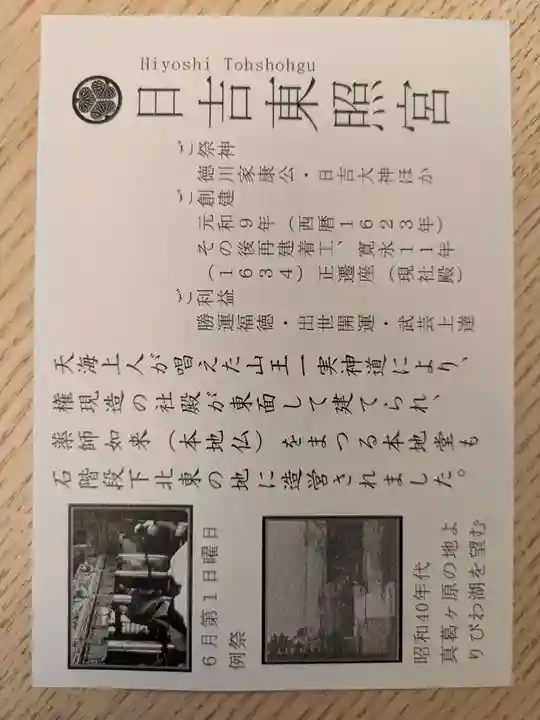 Hiyoshi Tohshohgu
日吉東照宮
ご祭神
徳川家康公・日吉大神ほか
ご創建
元和９年（西暦１６２３年）
その後再建着工、寛永１１年
（１６３４）正遷座（現社殿）
ご利益
勝運福徳・出世開運・武芸上達
天海上人が唱えた山王一実神道により、
権現造の社殿が東面して建てられ、
薬師如来（本地仏）をまつる本地堂も
石階段下北東の地に造営されました。
６月第１日曜日
例祭
昭和40年代
真葛ヶ原の地よ
りびわ湖を望む